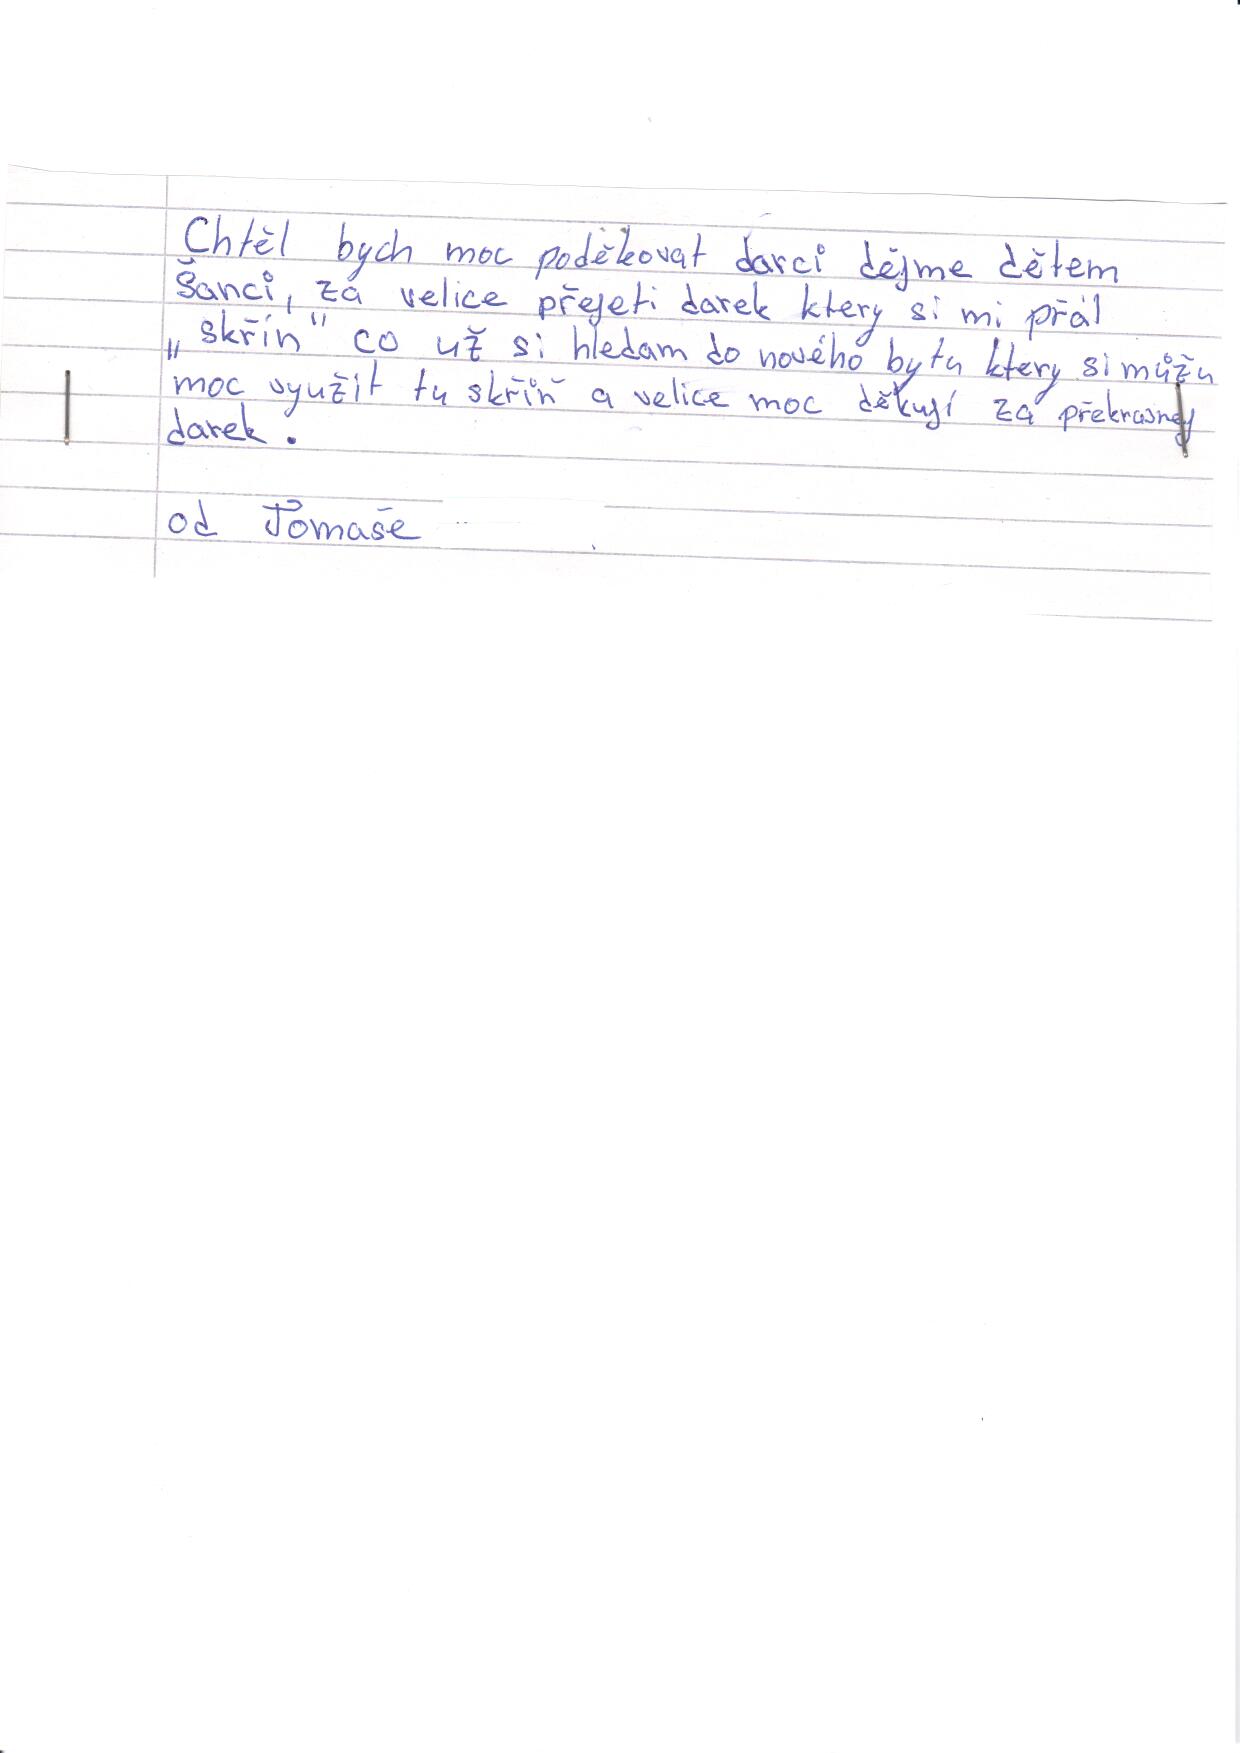 Chtěl bych moc poděkovat darci dějme dětem
Šanci, za velice přejeti darek ktery si mi přál
„skřín" co už si hledam do nového bytu ktery si můžu
moc využít tu skříň a velice moc děkují za překrasney
darek.
od Tomaše